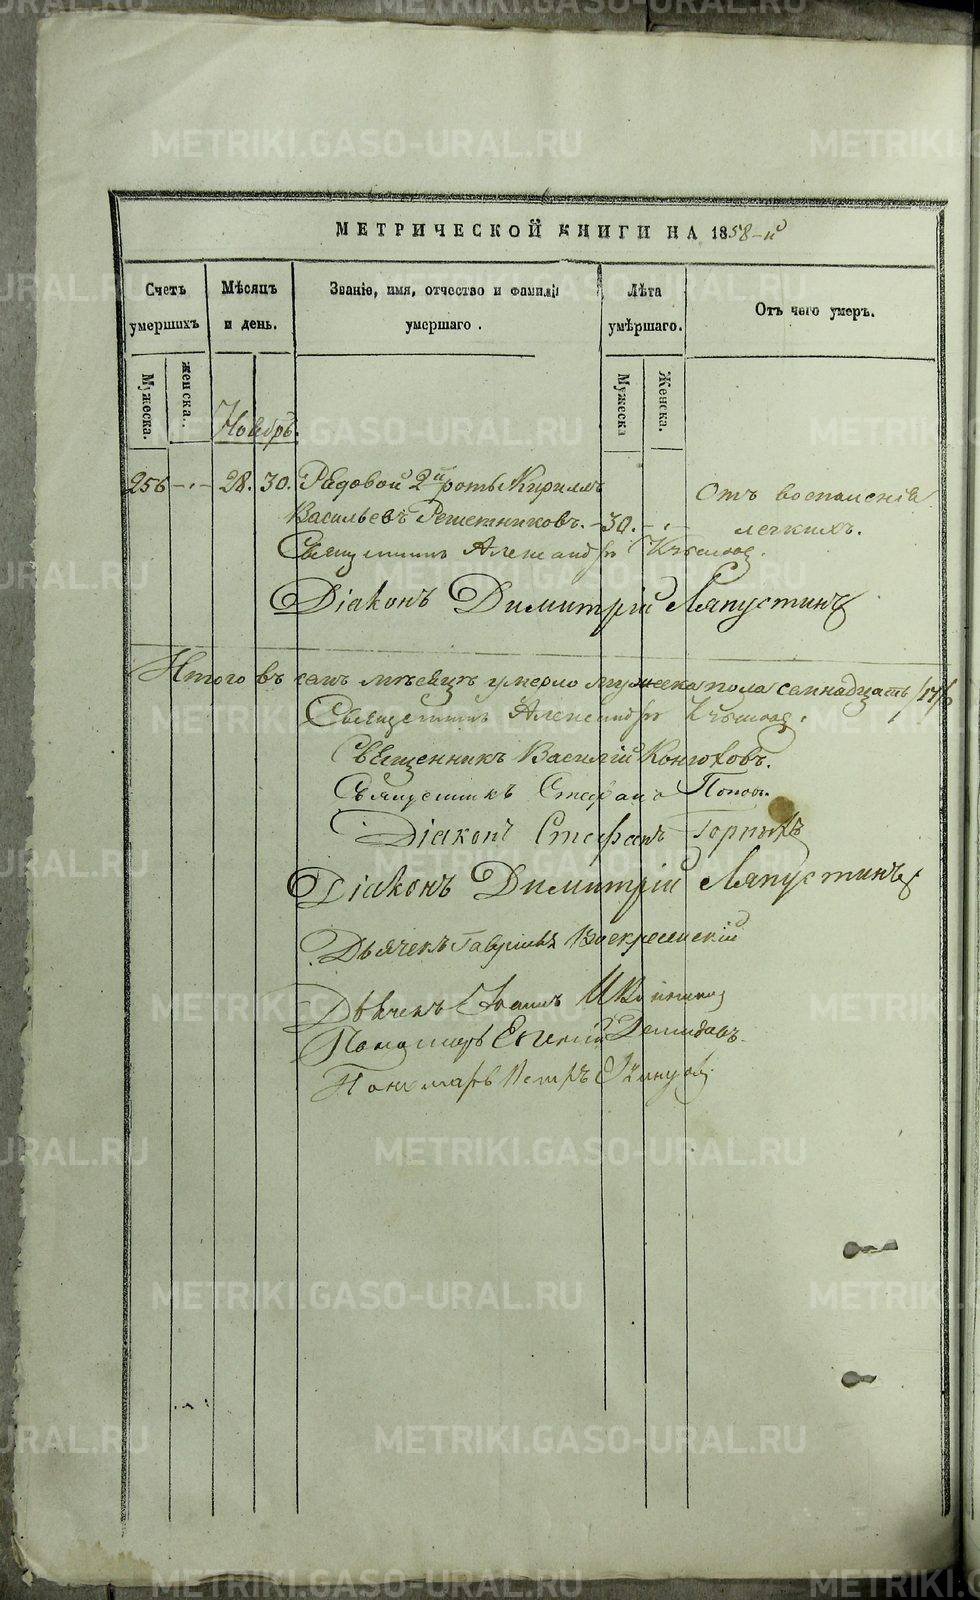 МЕТРИЧЕСКОЙ КНИГИ НА 1858-й
Счетъ умершихъ
Мѣсяцъ и день.
Званіе, имя, отчество и фамилія умершаго.
Лѣта умѣршаго.
Отъ чего умеръ.
Мужеска.
женска.
Мужеска
Женска.
Ноябрь.
256 - 28. 30. Рядовой 2й роты Кириллъ
Васильевъ Решетниковъ. - 30. -
Отъ воспаленія
легкихъ.
Священникъ Александръ
Діаконъ Димитрій Ляпустинъ
Итого въ семъ мѣсяцѣ умерло мужеска пола семнадцать /17/
Священникъ Александръ
Священникъ Василій Конюховъ.
Священникъ Стефанъ Поповъ.
Діаконъ Стефанъ Горныхъ
Діаконъ Димитрій Ляпустинъ
Дьячекъ Гавріилъ Воскресенский
Дьячекъ Іоаннъ
Пономарь Евгеній Демидовъ.
Пономарь Петръ
METRIKI.GASO-URAL.RU